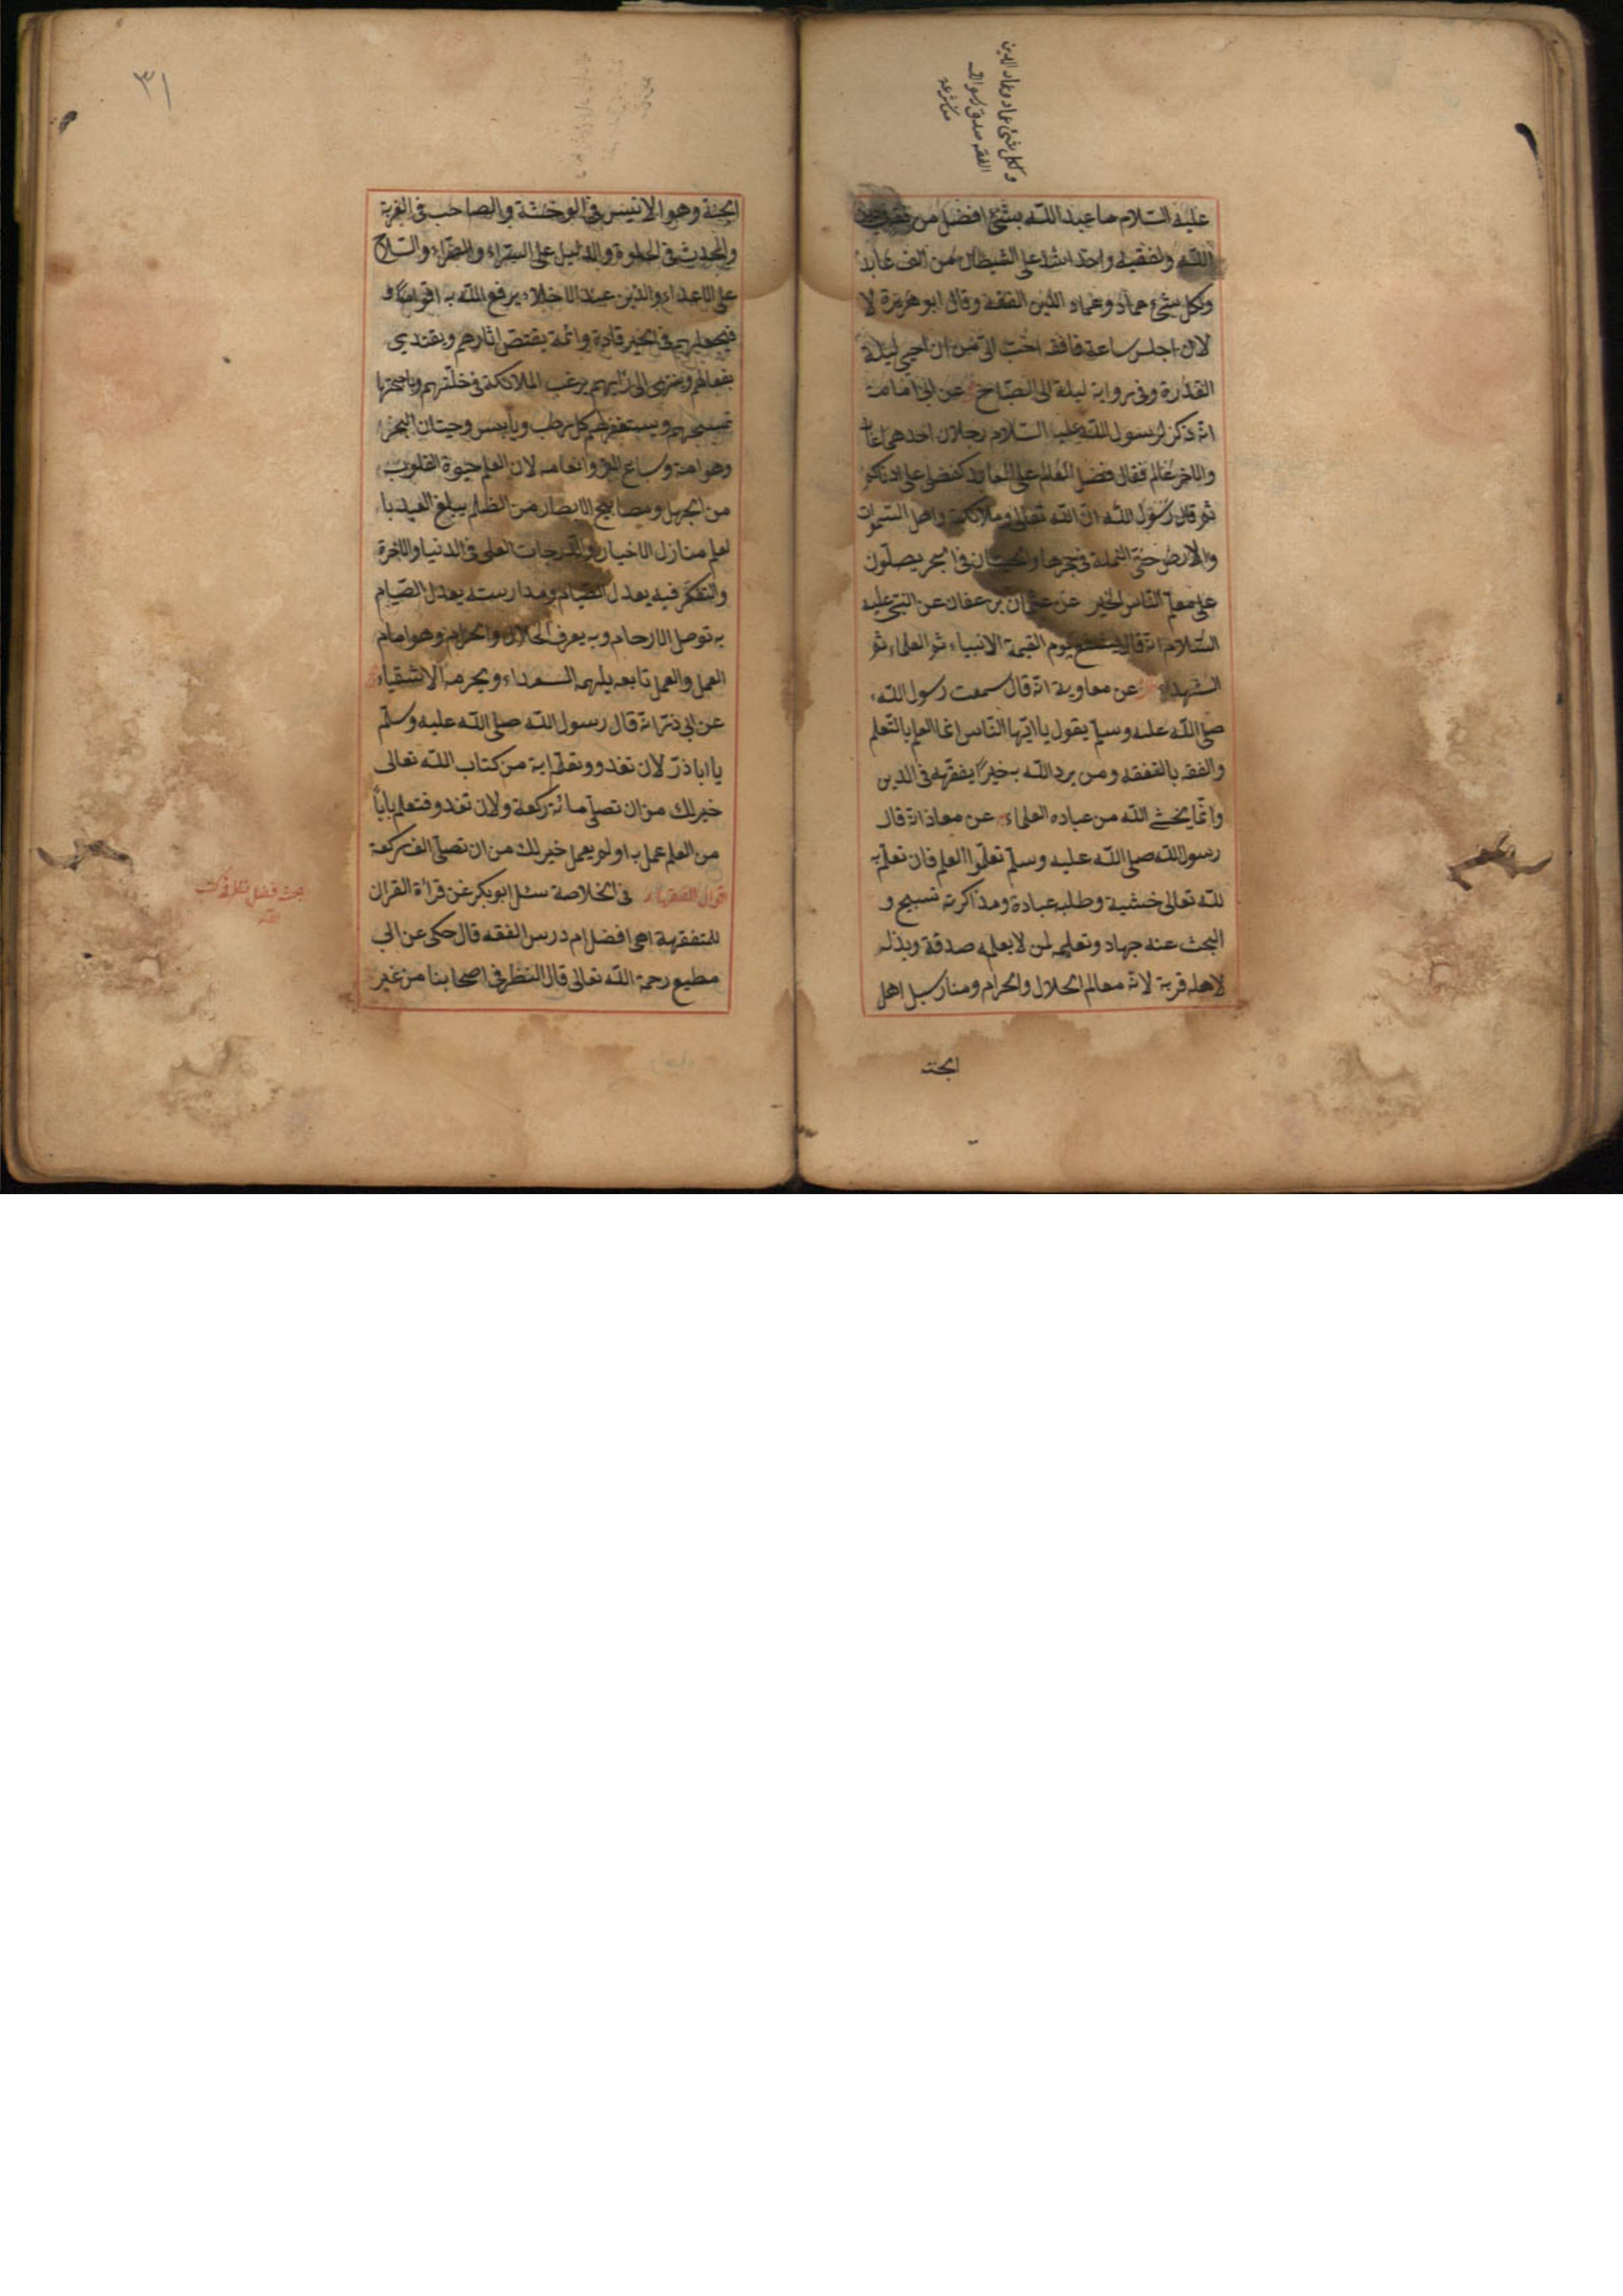 ولكل شئ عماد وعماد الدين
الفقه صدق رسول الله
عليه السلام ما عبد الله بشئ افضل من فقه في دين
الله ولفقيه واحد اشد على الشيطان من الف عابد
ولكل شئ عماد وعماد الدين الفقه وقال ابو هريرة لا
لان اجلس ساعة فافقه احب الى من ان احيى ليلة
القدرة وفى رواية ليلة الى الصباح عن ابى امامة
انه ذكر لرسول الله عليه السلام رجلان احدهما عابد
والاخر عالم فقال فضل العالم على العابد كفضلى على ادناكم
ثم قال رسول الله ان الله تعالى وملائكته واهل السموات
والارض حتى النملة فى جحرها والحيتان فى البحر يصلون
على معلم الناس الخير عن عثمان بن عفان عن النبى عليه
السلام انه قال يشفع يوم القيمة الانبياء ثم العلماء ثم
الشهداء عن معاوية انه قال سمعت رسول الله
صلى الله عليه وسلم يقول يا ايها الناس انما العلم بالتعلم
والفقه بالتفقه ومن يرد الله به خيرا يفقهه فى الدين
وانما يخشى الله من عباده العلماء عن معاذ انه قال
رسول الله صلى الله عليه وسلم تعلموا العلم فان تعلمه
لله تعالى خشية وطلبه عبادة ومذاكرته تسبيح و
البحث عنه جهاد وتعليمه لمن لا يعلمه صدقة وبذله
لاهله قربة لانه معالم الحلال والحرام ومنار سبل اهل
الجنة
٣١
الجنة وهو الانيس فى الوحشة والصاحب فى الغربة
والمحدث فى الخلوة والدليل على السراء والضراء والسلاح
على الاعداء والدين عند الاخلاء يرفع الله به اقواما و
فيجعلهم فى الخير قادة وائمة يقتص اثارهم ويقتدى
بفعالهم وينتهى الى رايهم ترغب الملائكة فى خلتهم وباجنحتها
تمسحهم ويستغفر لهم كل رطب ويابس وحيتان البحر
وهوامه وسباع البر وانعامه لان العلم حيوة القلوب
من الجهل ومصابيح الابصار من الظلم يبلغ العبد با
لعلم منازل الاخيار والدرجات العلى فى الدنيا والاخرة
والتفكر فيه يعدل الصيام ومدارسته يعدل القيام
به توصل الارحام وبه يعرف الحلال والحرام وهو امام
العمل والعمل تابعه يلهمه السعداء ويحرمه الاشقياء
عن ابى ذر انه قال رسول الله صلى الله عليه وسلم
يا ابا ذر لان تغدو وتعلم اية من كتاب الله تعالى
خير لك من ان تصلى مائة ركعة ولان تغدو فتعلم بابا
من العلم عمل به او لم يعمل خير لك من ان تصلى الف ركعة
اقوال الفقهاء فى الخلاصة سئل ابو بكر عن قراة القران
للمتفقهة اهى افضل ام درس الفقه قال حكى عن ابى
مطيع رحمه الله تعالى قال النظر فى اصحابنا من غير